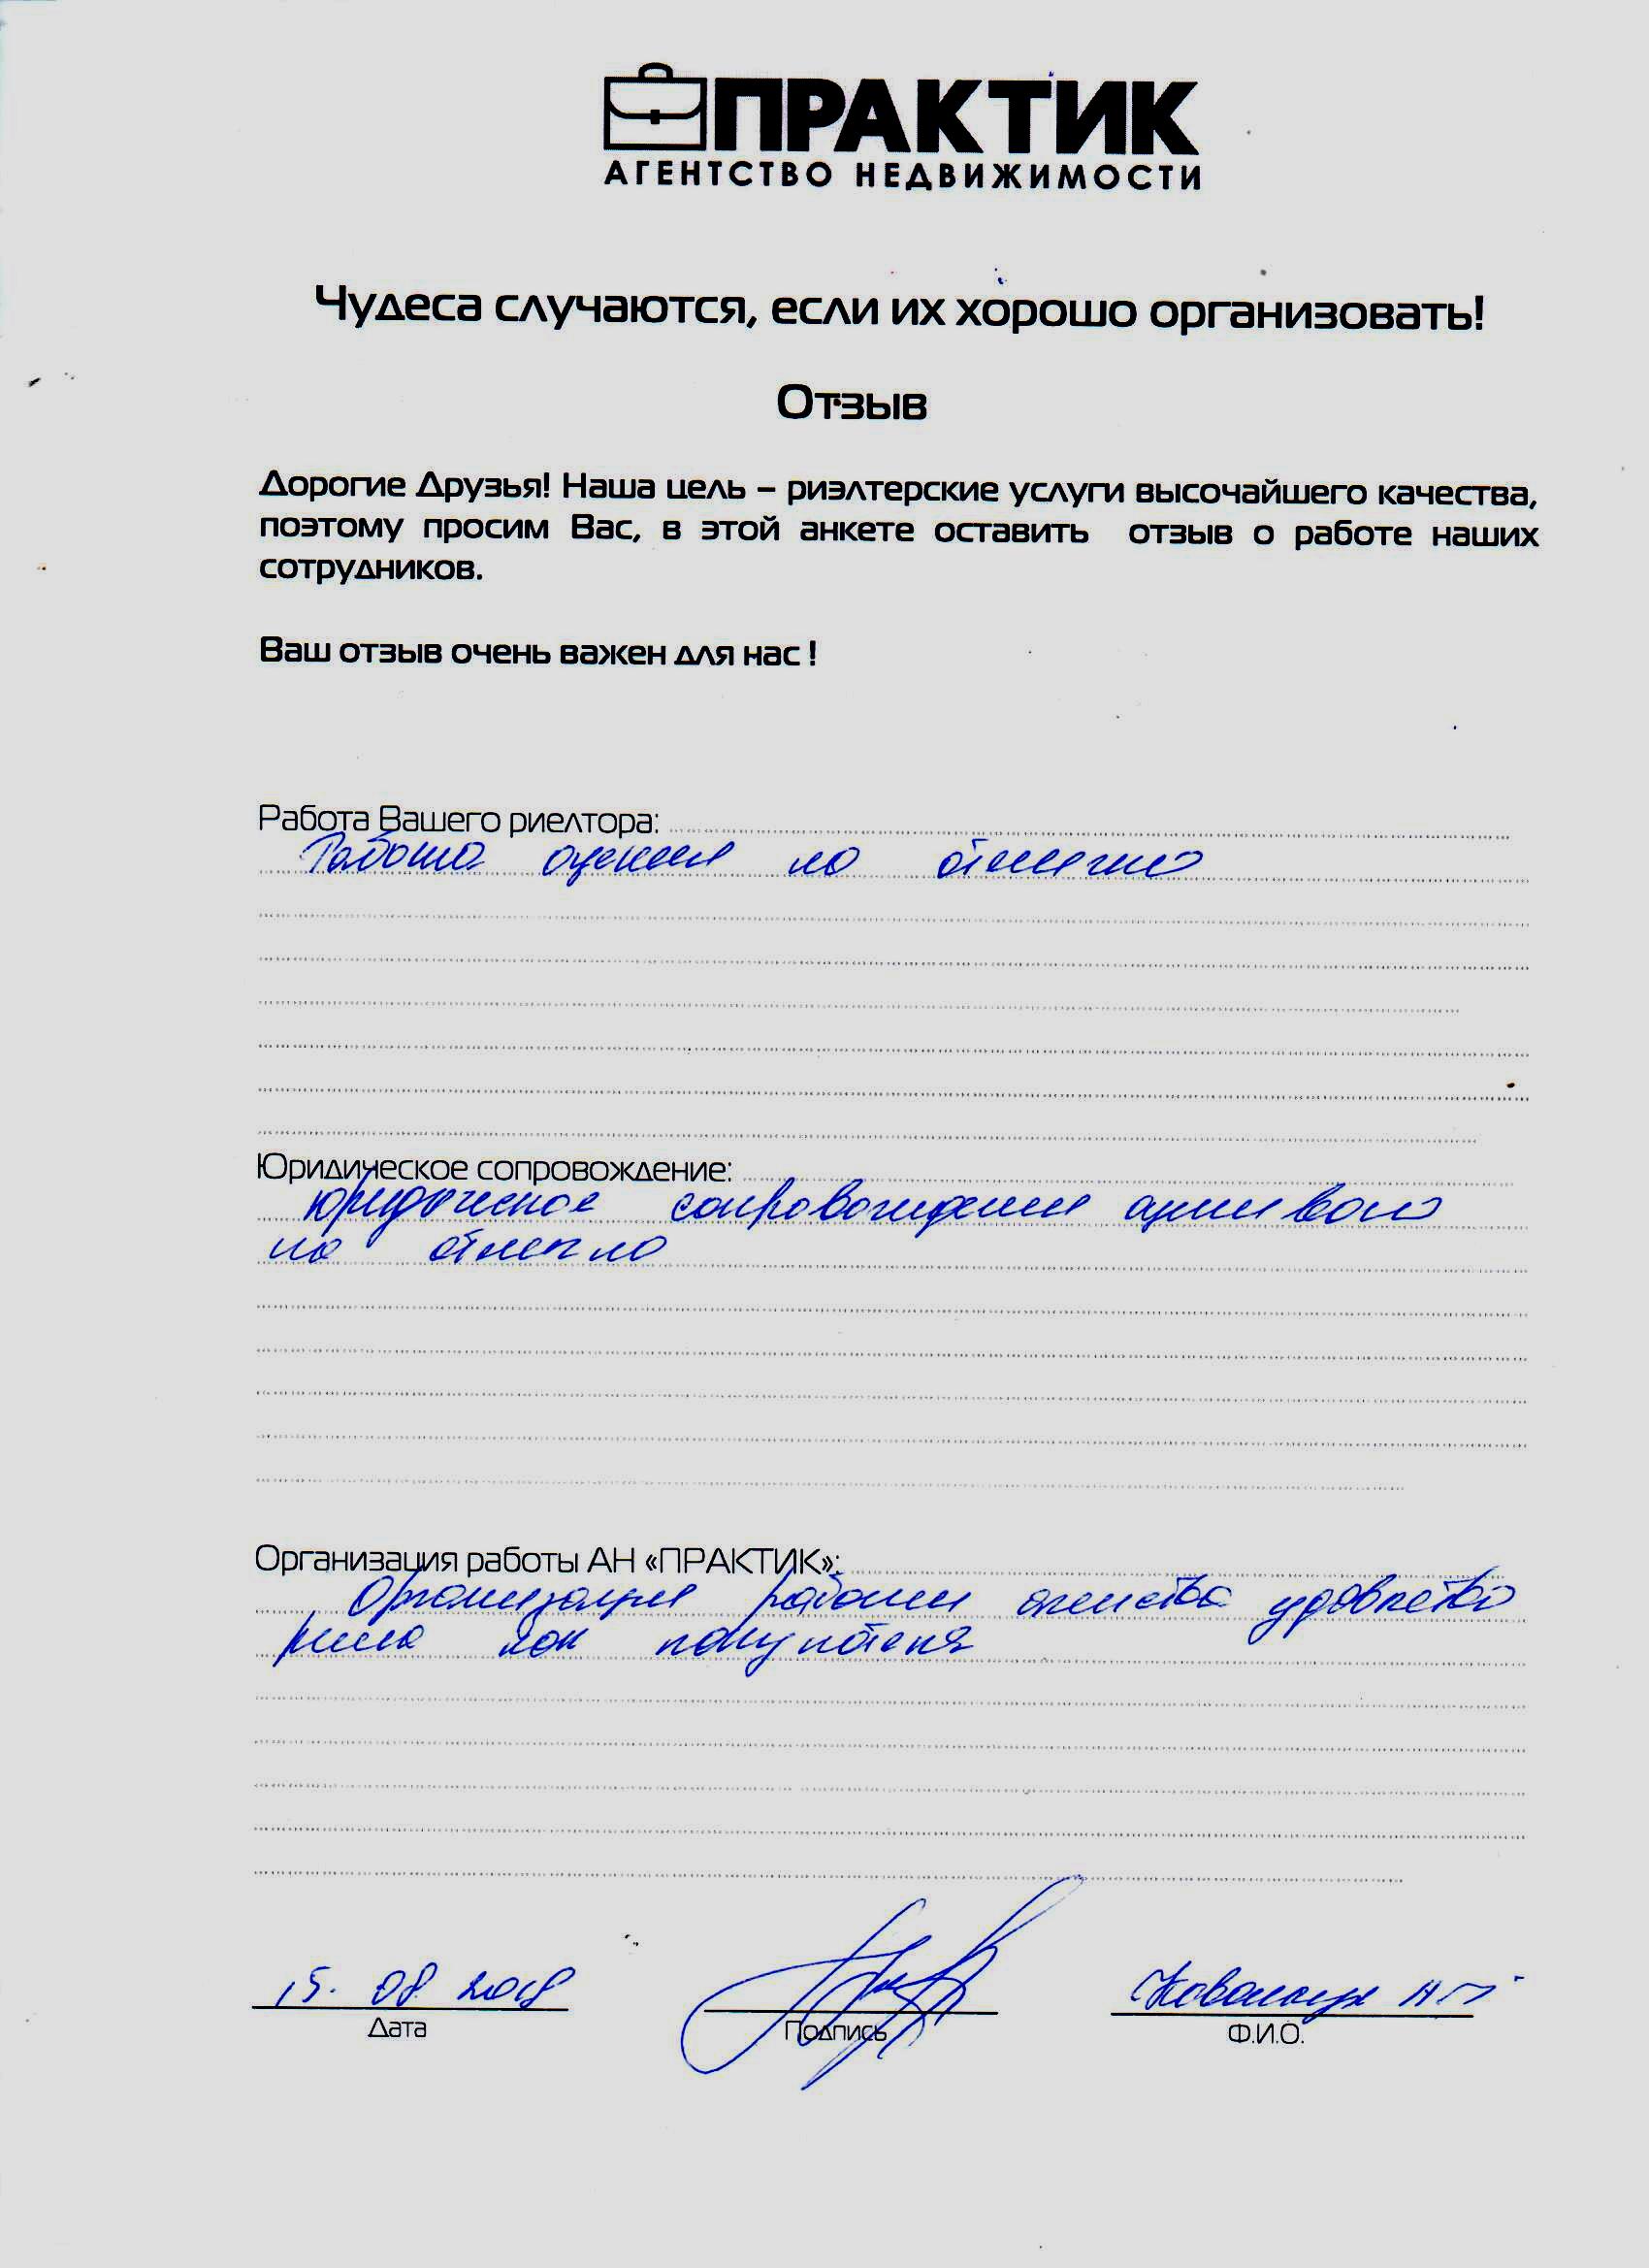 ПРАКТИК
АГЕНТСТВО НЕДВИЖИМОСТИ
Чудеса случаются, если их хорошо организовать!
Отзыв
Дорогие Друзья! Наша цель – риэлтерские услуги высочайшего качества,
поэтому просим Вас, в этой анкете оставить отзыв о работе наших
сотрудников.
Ваш отзыв очень важен для нас !
Работа Вашего риелтора:
Работа оценена на отлично
Юридическое сопровождение:
Юридическое сопровождение
на отлично
Организация работы АН «ПРАКТИК»:
Организация работы агенства удовлетво
рила как покупателя
15. 08. 2018
Дата
Подпись
Ковальчук
Ф.И.О.